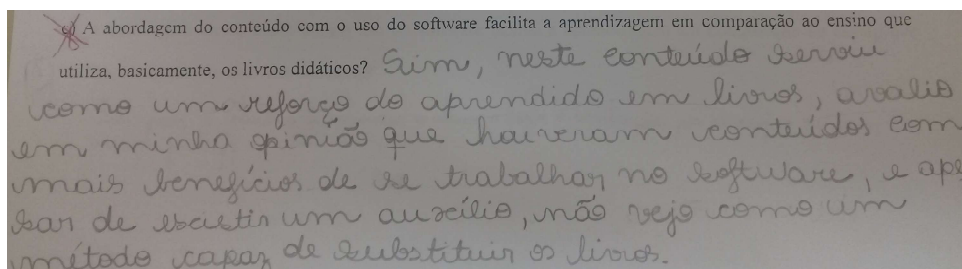 A abordagem do conteúdo com o uso do software facilita a aprendizagem em comparação ao ensino que
utiliza, basicamente, os livros didáticos? Sim, neste conteúdo serviu
como um reforço do aprendido em livros, avalio
em minha opinião que haveram conteúdos com
mais benefícios de se trabalhar no software, e ape
sar de existir um auxílio, não vejo como um
método capaz de substituir os livros.